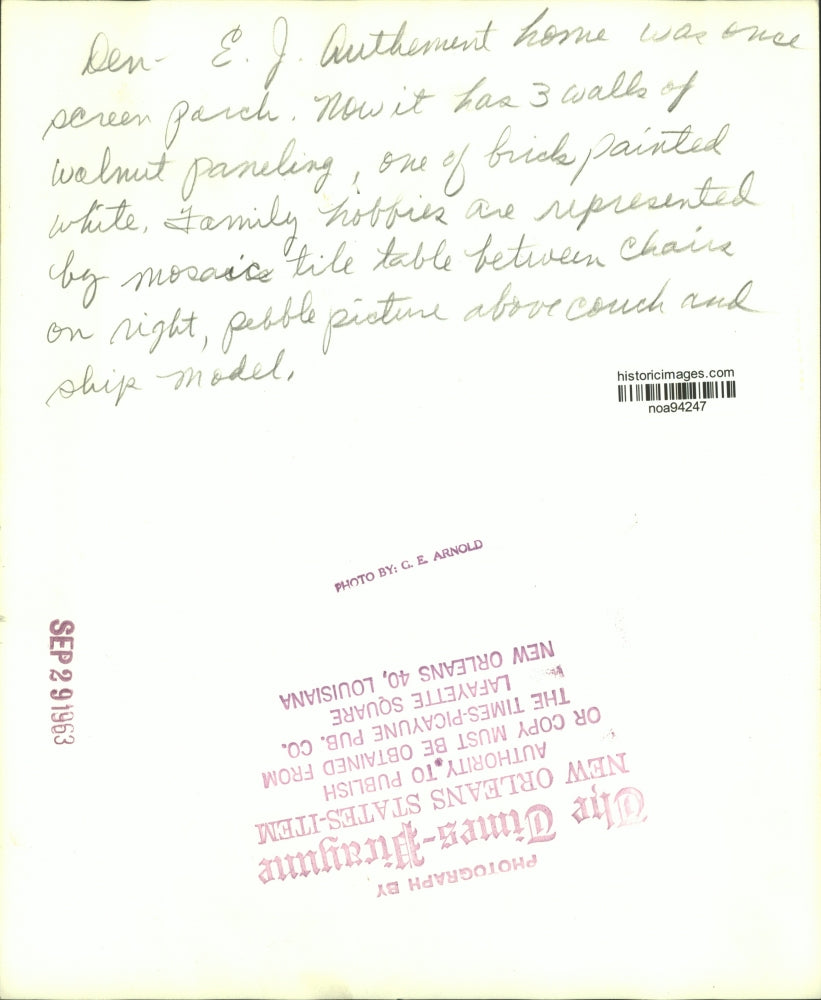 Den- E. J. Authement home was once
screen porch. Now it has 3 walls of
walnut paneling, one of brick painted
white. Family hobbies are represented
by mosaic tile table between chairs
on right, pebble picture above couch and
ship model.
historicimages.com
noa94247
PHOTO BY: G. E. ARNOLD
SEP 29 1963
PHOTOGRAPH BY
The Times-Picayune
NEW ORLEANS STATES-ITEM
AUTHORITY TO PUBLISH
OR COPY MUST BE OBTAINED FROM
THE TIMES-PICAYUNE PUB. CO.
LAFAYETTE SQUARE
NEW ORLEANS 40, LOUISIANA